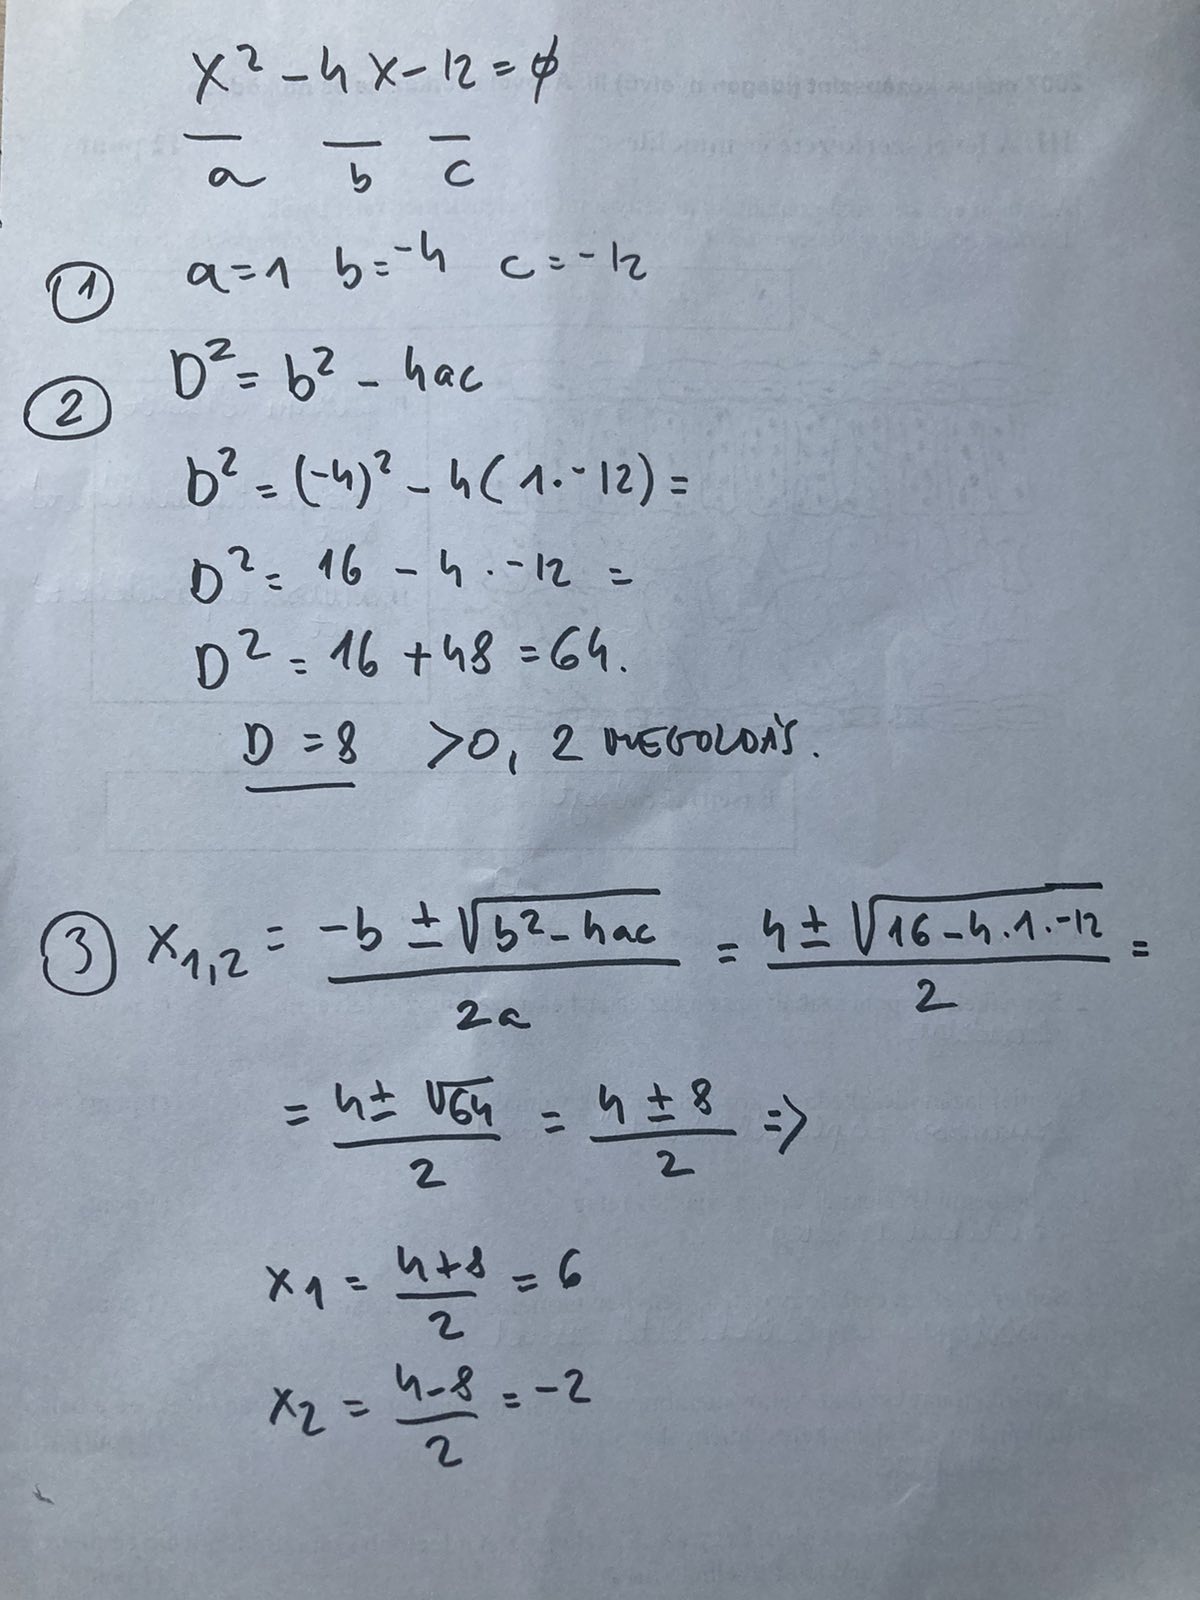 x² - 4x - 12 = 0
a b c
① a = 1 b = -4 c = -12
② D² = b² - 4ac
b² = (-4)² - 4(1·-12) =
D² = 16 - 4·-12 =
D² = 16 + 48 = 64.
D = 8 >0, 2 MEGOLDÁS.
③ x1,2 = (-b ± √(b² - 4ac)) / 2a = (4 ± √(16 - 4·1·-12)) / 2 =
= (4 ± √64) / 2 = (4 ± 8) / 2 =>
x1 = (4+8) / 2 = 6
x2 = (4-8) / 2 = -2